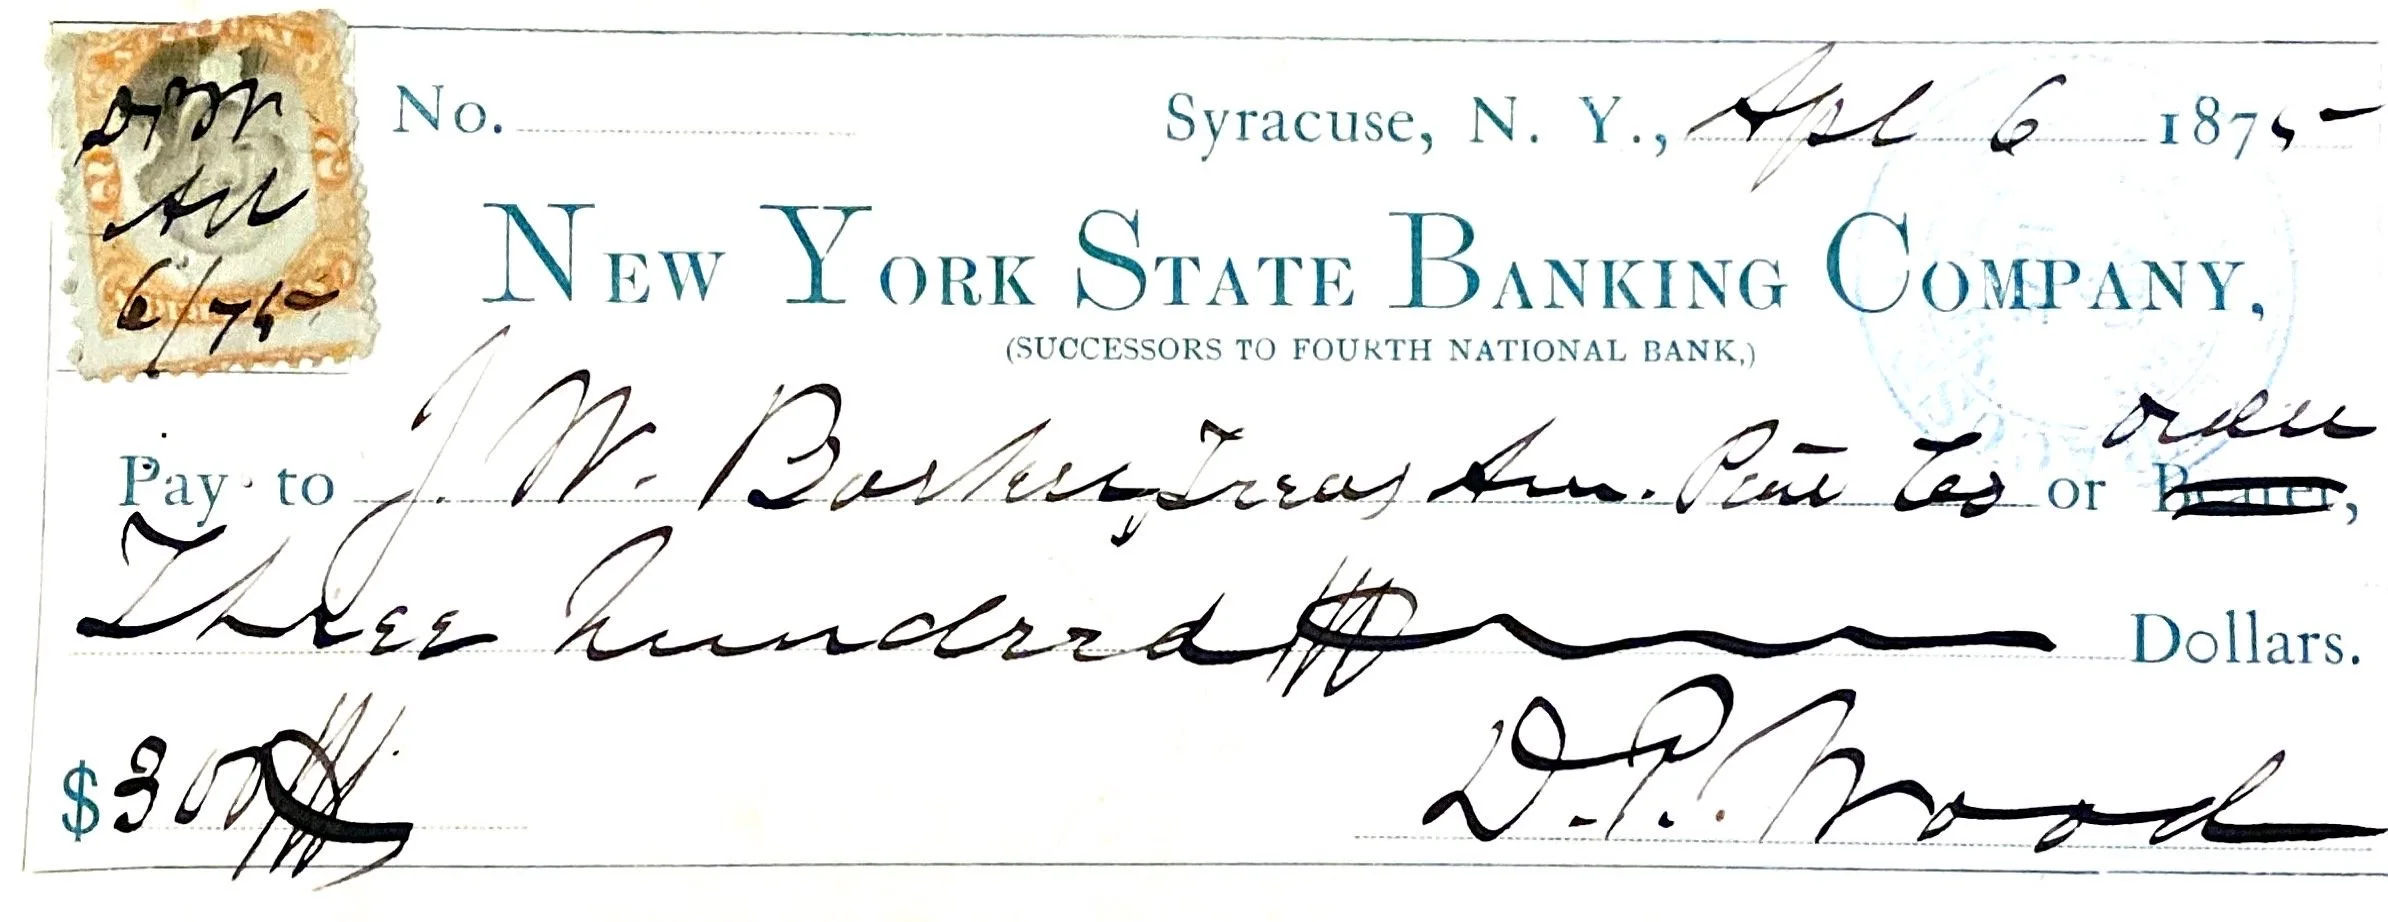 DPW
Apl
6/75
2 2
No. Syracuse, N. Y., Apl 6 1875
NEW YORK STATE BANKING COMPANY,
(SUCCESSORS TO FOURTH NATIONAL BANK,)
order
Pay to J. W. Barker, Treas Am. Co or Bearer,
Three hundred Dollars.
$300
D. P. Wood